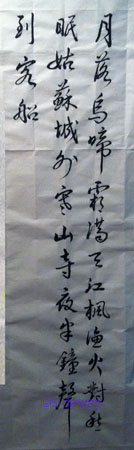 月落烏啼霜滿天江楓漁火對愁
眠姑蘇城外寒山寺夜半鐘聲
到客船